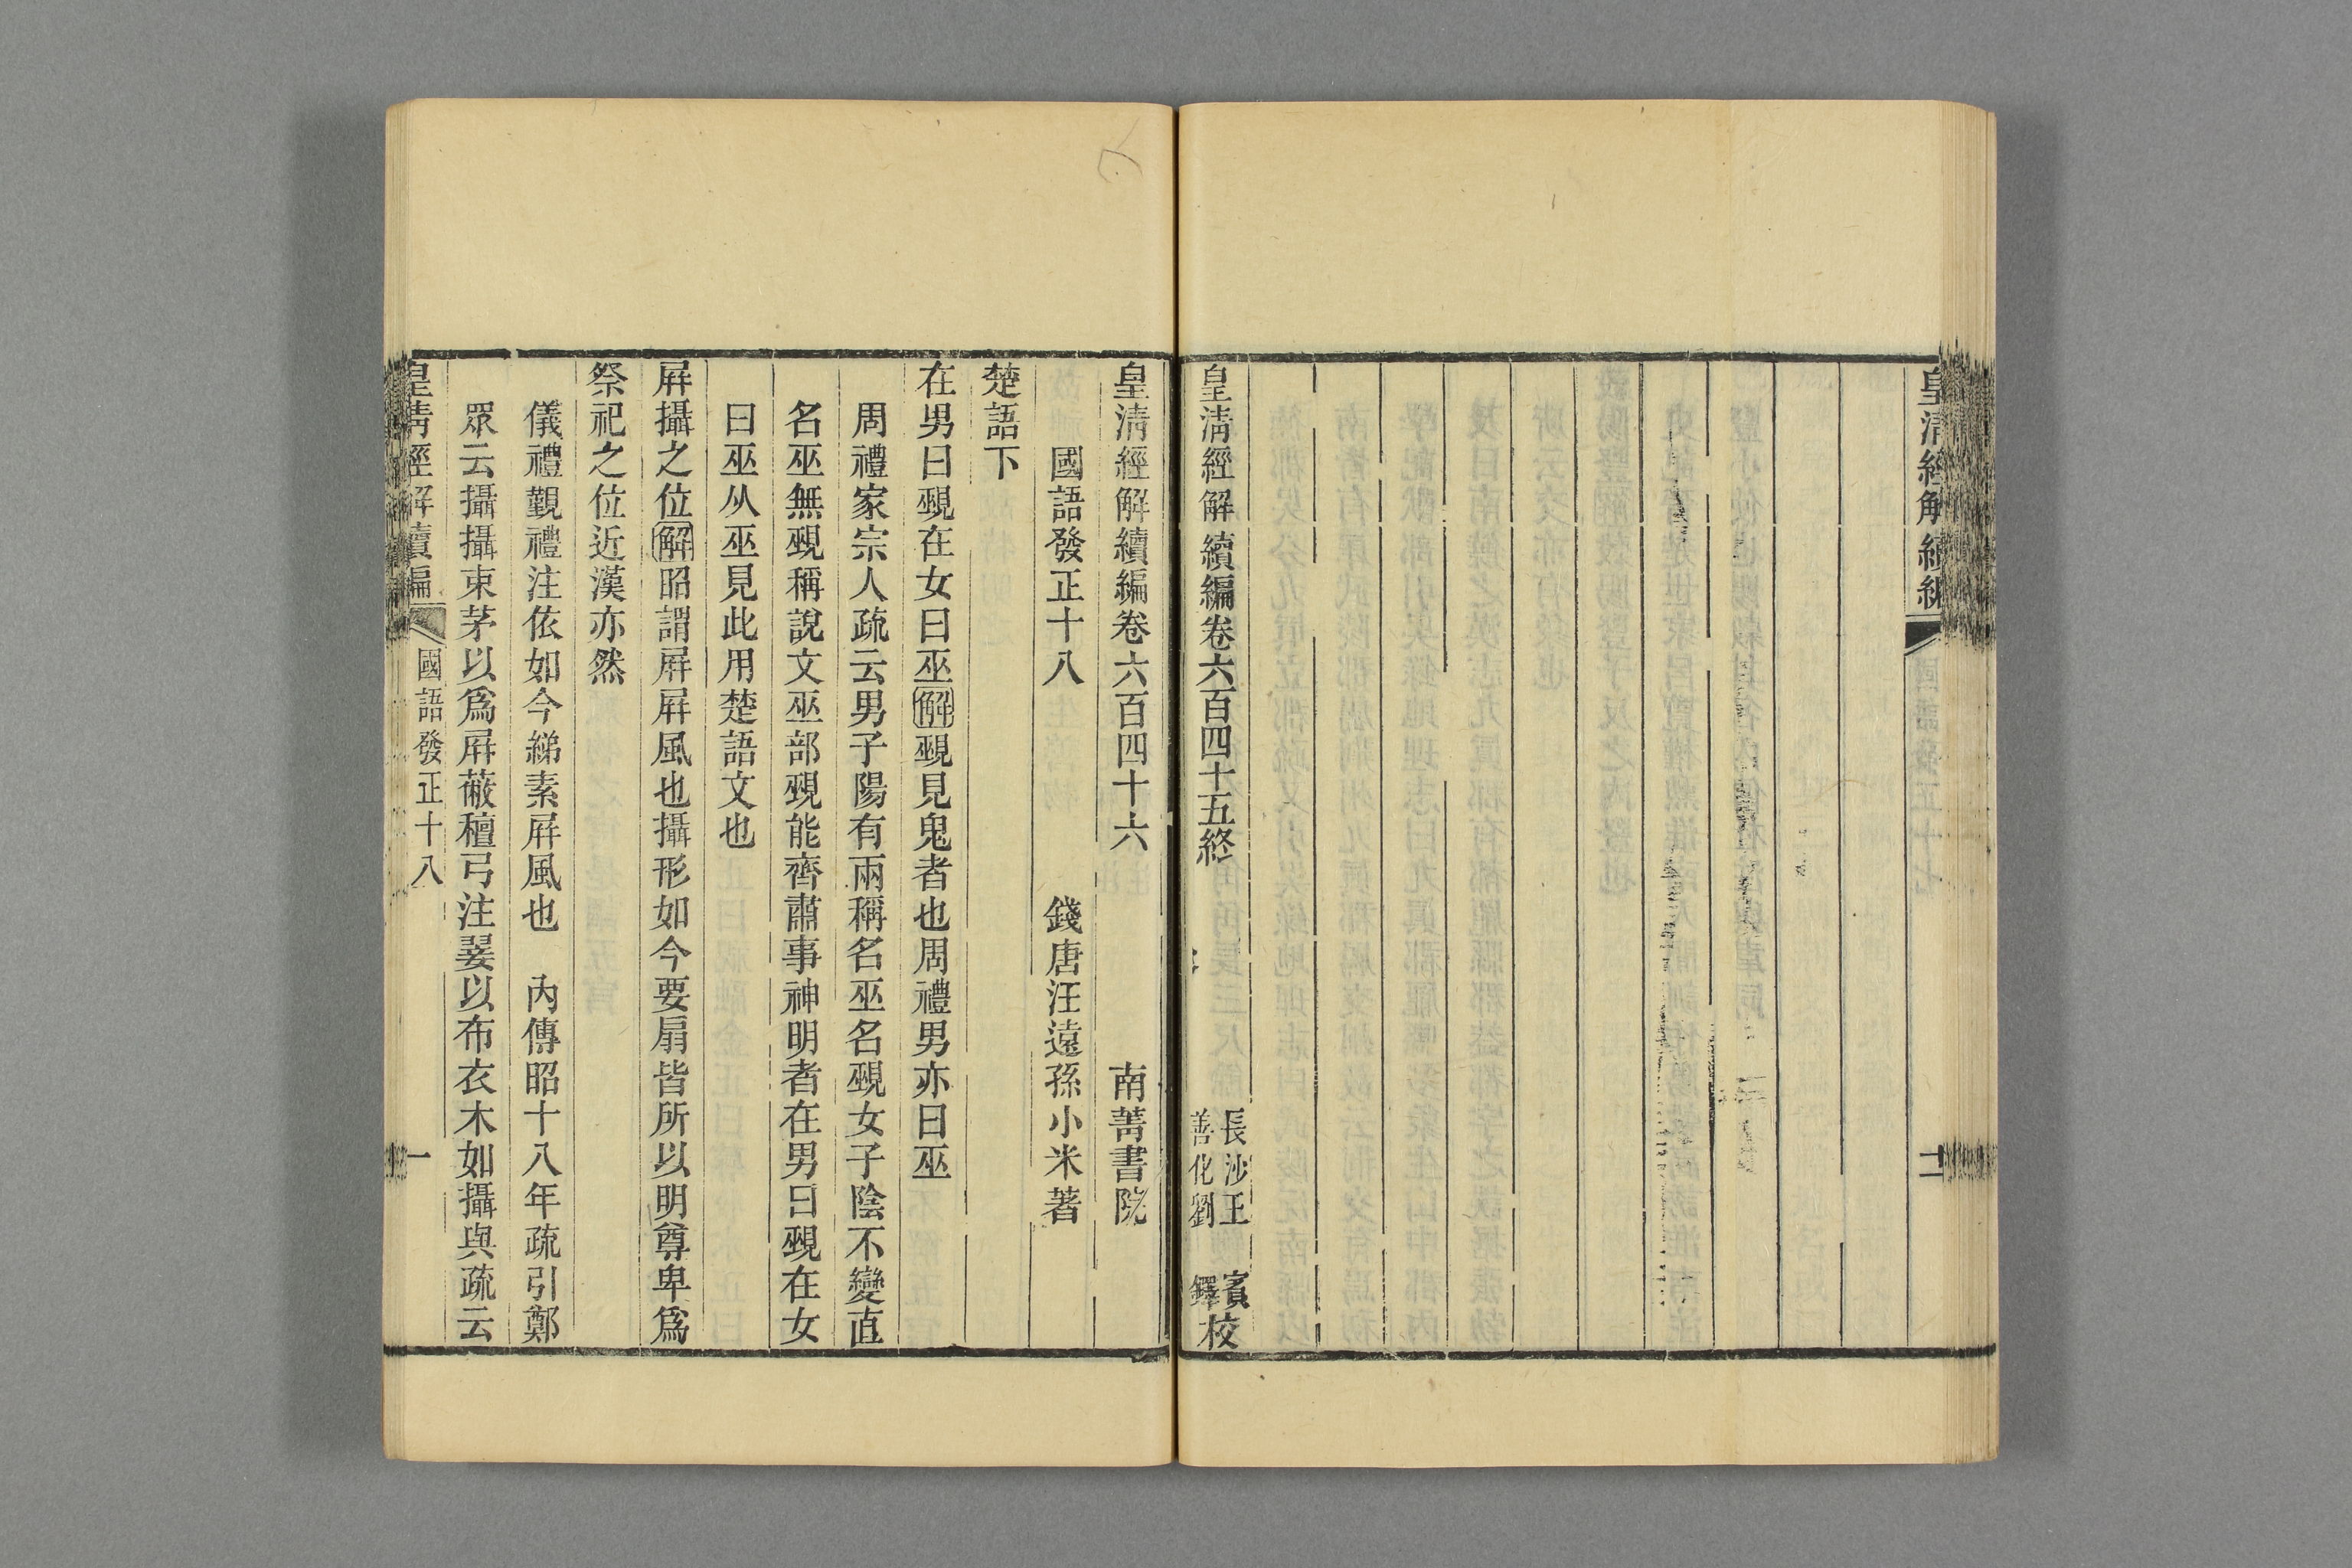 皇清經解續編
十二
皇清經解續編卷六百四十五終
長沙王
善化劉
賓
鐸
校
皇清經解續編卷六百四十六 南菁書院
國語發正十八 錢唐汪遠孫小米著
楚語下
在男曰覡在女曰巫解覡見鬼者也周禮男亦曰巫
周禮家宗人疏云男子陽有兩稱名巫名覡女子陰不變直
名巫無覡稱說文巫部覡能齊肅事神明者在男曰覡在女
曰巫从巫見此用楚語文也
屛攝之位解昭謂屛屛風也攝形如今要扇皆所以明尊卑爲
祭祀之位近漢亦然
儀禮覲禮注依如今綈素屛風也 內傳昭十八年疏引鄭
眾云攝攝束茅以爲屛蔽檀弓注翣以布衣木如攝與疏云
皇清經解續編 國語發正十八 一